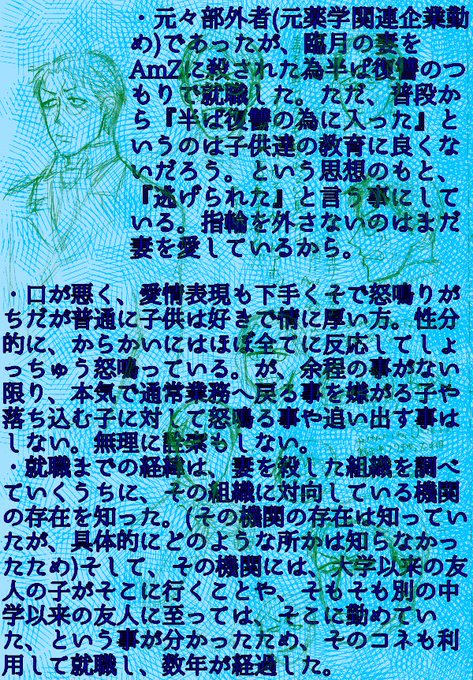 ・元々部外者(元薬学関連企業勤
め)であったが、臨月の妻を
AmZに殺された為半ば復讐のつ
もりで就職した。ただ、普段か
ら『半ば復讐の為に入った』と
いうのは子供達の教育に良くな
いだろう。という思想のもと、
『逃げられた』と言う事にして
いる。指輪を外さないのはまだ
妻を愛しているから。
・口が悪く、愛情表現も下手くそで怒鳴りが
ちだが普通に子供は好きで情に厚い方。性分
的に、からかいにはほぼ全てに反応してしょ
っちゅう怒鳴っている。が、余程の事がない
限り、本気で通常業務へ戻る事を嫌がる子や
落ち込む子に対して怒鳴る事や追い出す事は
しない。無理に詮索もしない。
・就職までの経緯は、妻を殺した組織を調べ
ていくうちに、その組織に対向している機関
の存在を知った。(その機関の存在は知ってい
たが、具体的にどのような所かは知らなかっ
たため)そして、その機関には、大学以来の友
人の子がそこに行くことや、そもそも別の中
学以来の友人に至っては、そこに勤めてい
た、という事が分かったため、そのコネも利
用して就職し、数年が経過した。